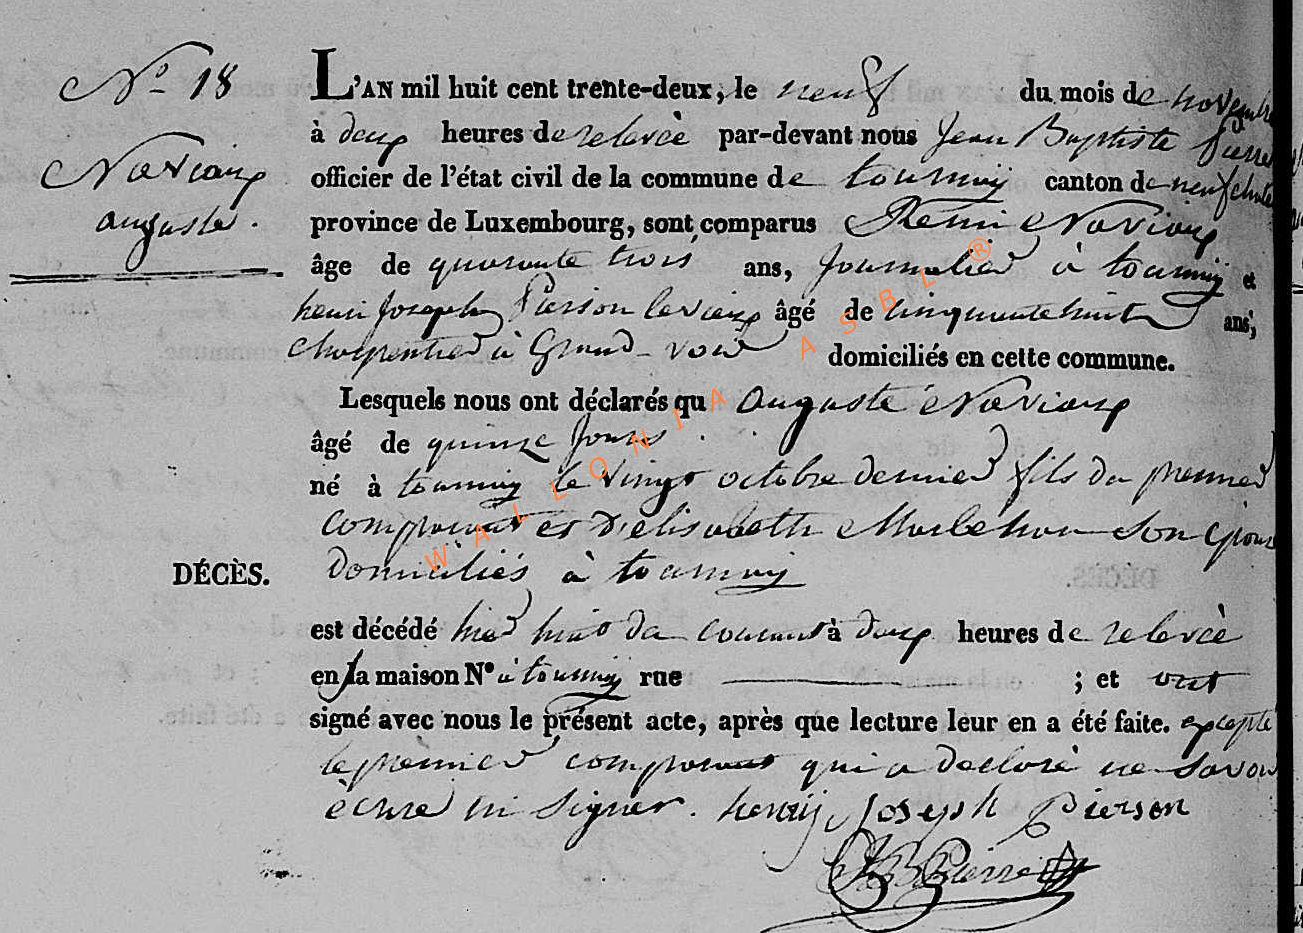 N° 18
Naviaux
auguste.
L'AN mil huit cent trente-deux, le neuf du mois de novembre
à deux heures de relevée par-devant nous Jean Baptiste Pierre
officier de l'état civil de la commune de tournay canton de neufchate
province de Luxembourg, sont comparus Remi Naviaux
âge de quarante trois ans, Journalier à tournay et
henri Joseph Pierson le vieux âgé de cinquante huit ans,
charpentier à Grand-voir domiciliés en cette commune.
Lesquels nous ont déclarés qu auguste Naviaux
âgé de quinze Jours
né à tournay le vingt octobre dernier fils du premier
comparant et d'elisabeth Morbehan son epouse
DÉCÈS.
domiciliés à tournay
est décédé hier huit du courant à deux heures de relevée
en la maison N° à tournay rue ; et ont
signé avec nous le présent acte, après que lecture leur en a été faite. excepté
le premier comparant qui a declaré ne savoir
écrire ni signer. henry Joseph pierson
JB Pierre
WALLONIA ASBL ®